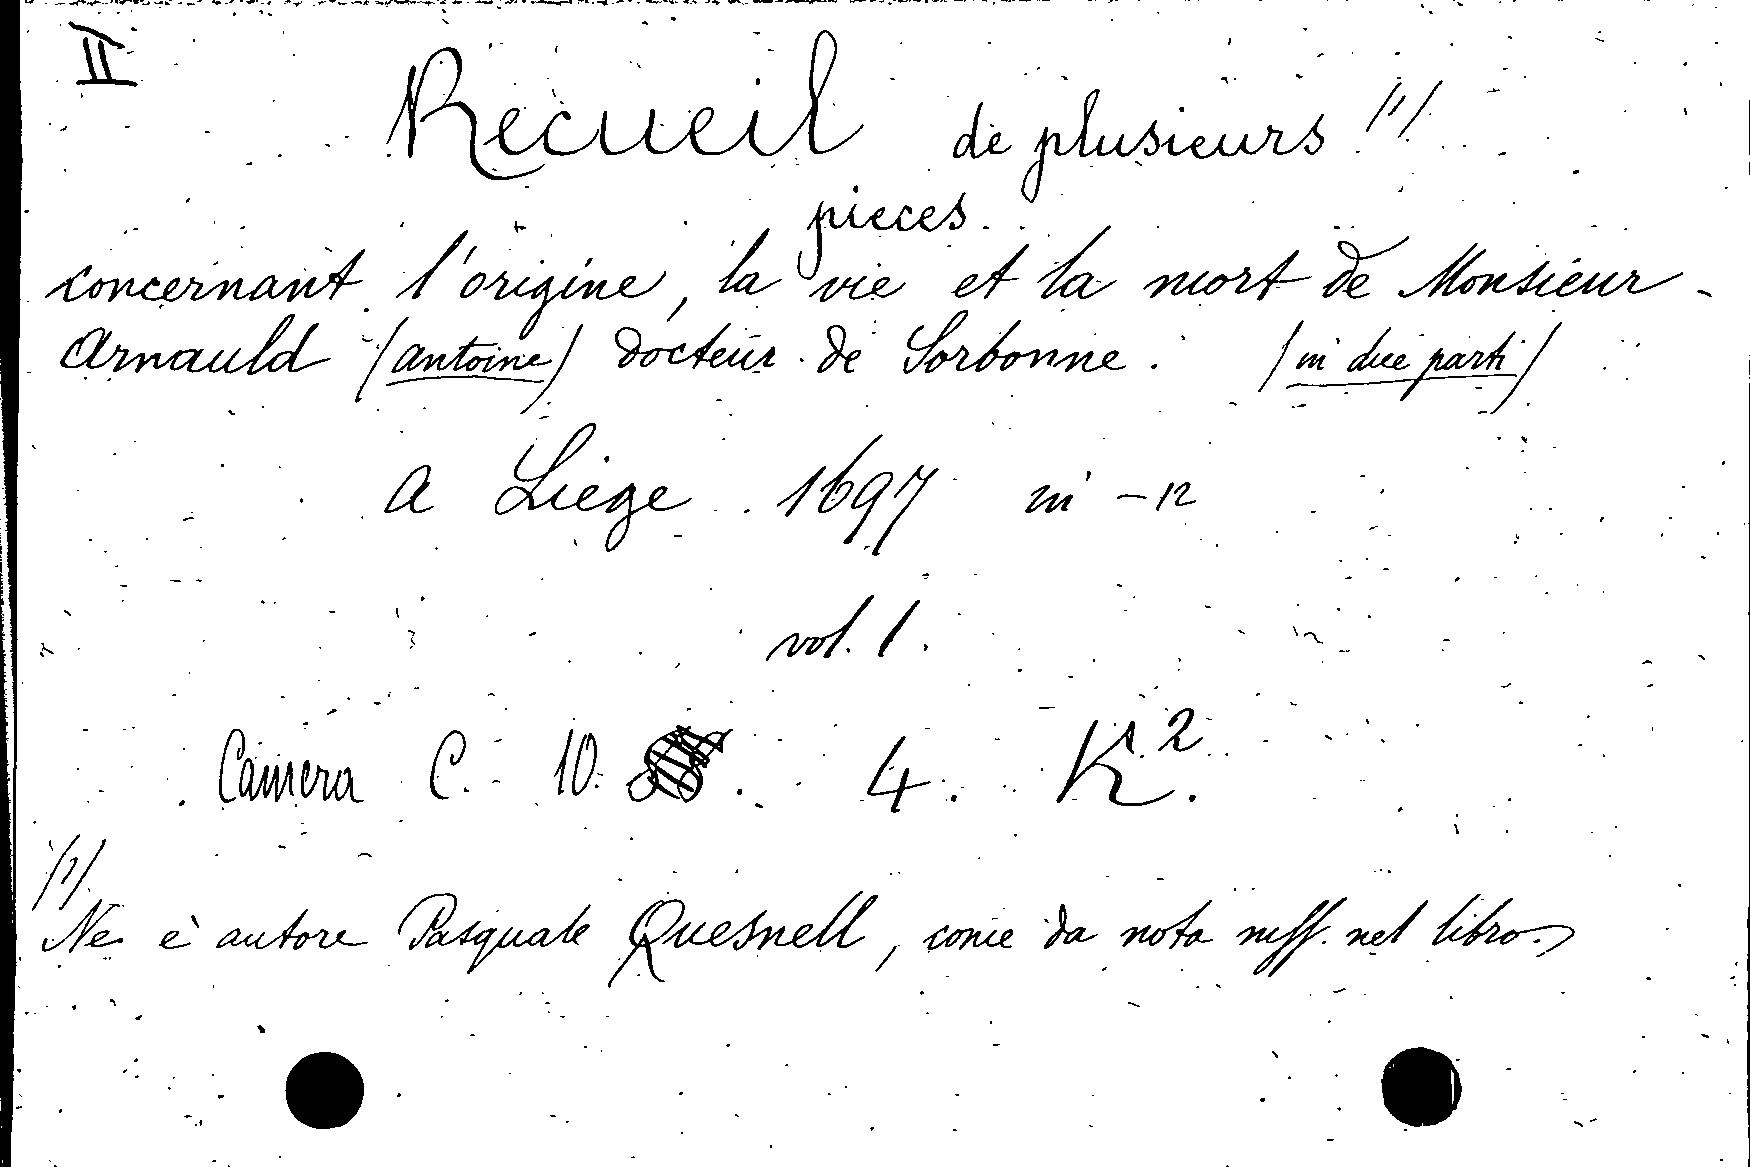 II
Recueil de plusieurs (1)
pieces
concernant l'origine, la vie et la mort de Monsieur
Arnauld (antoine) docteur de Sorbonne. (in due parti)
A Liége 1697 in -12
vol. 1.
Camera C. 10. 4. K2.
(1)
Ne è autore Pasquale Quesnell, come da nota mss. nel libro.